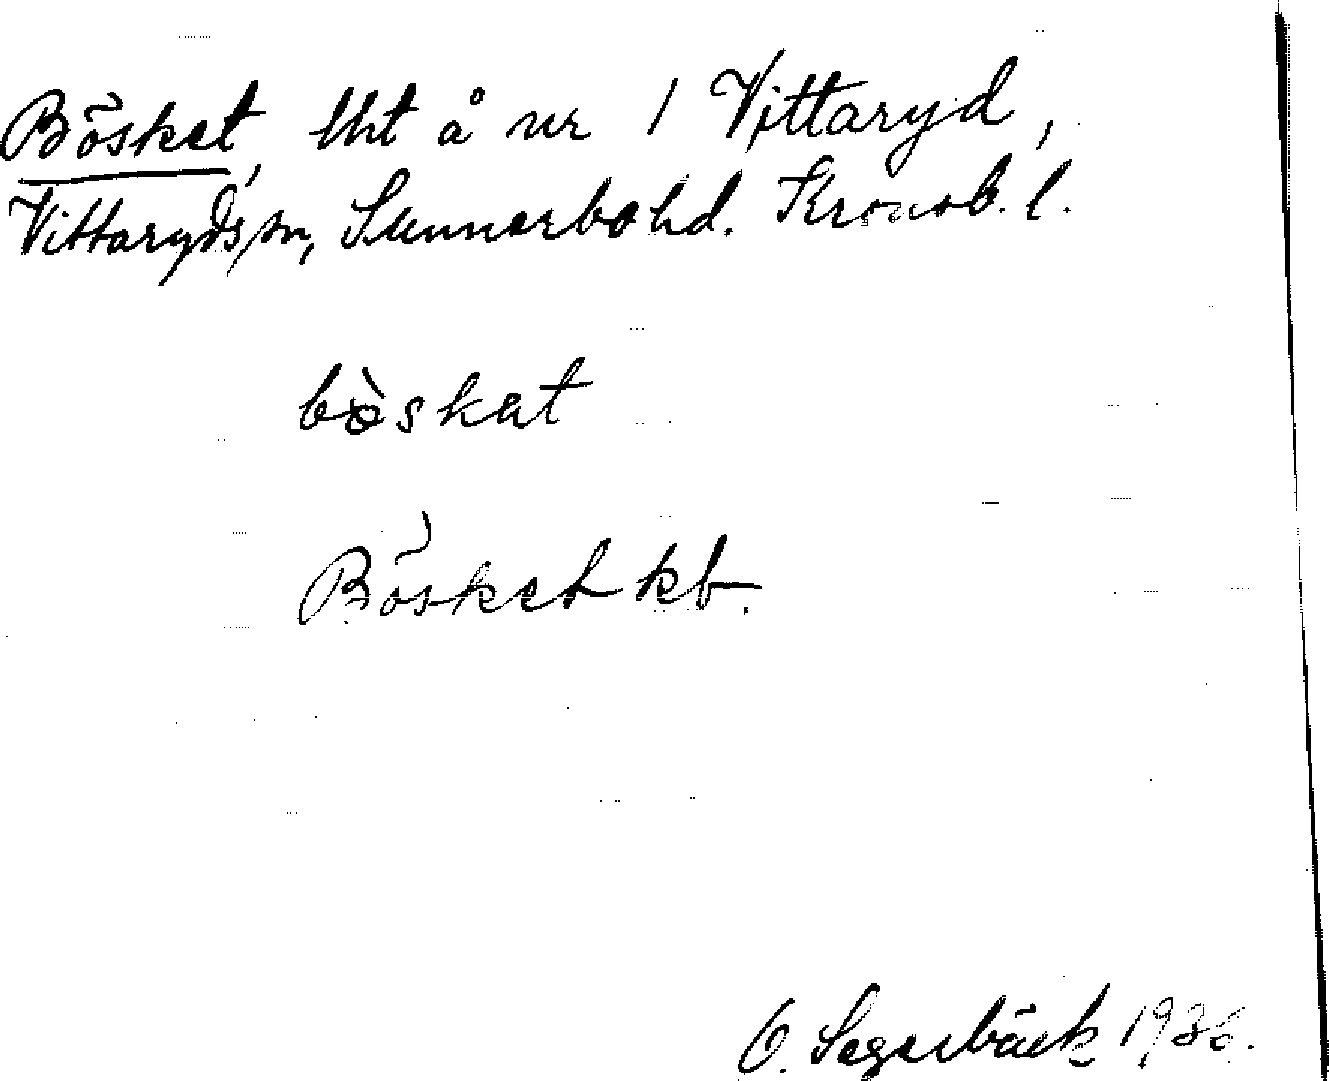 Bösket, lht å nr 1 Vittaryd,
Vittaryds sn, Sunnerbo hd. Kronob. l.
bòskat
Bösket kb.
O. Segerbäck 1936.